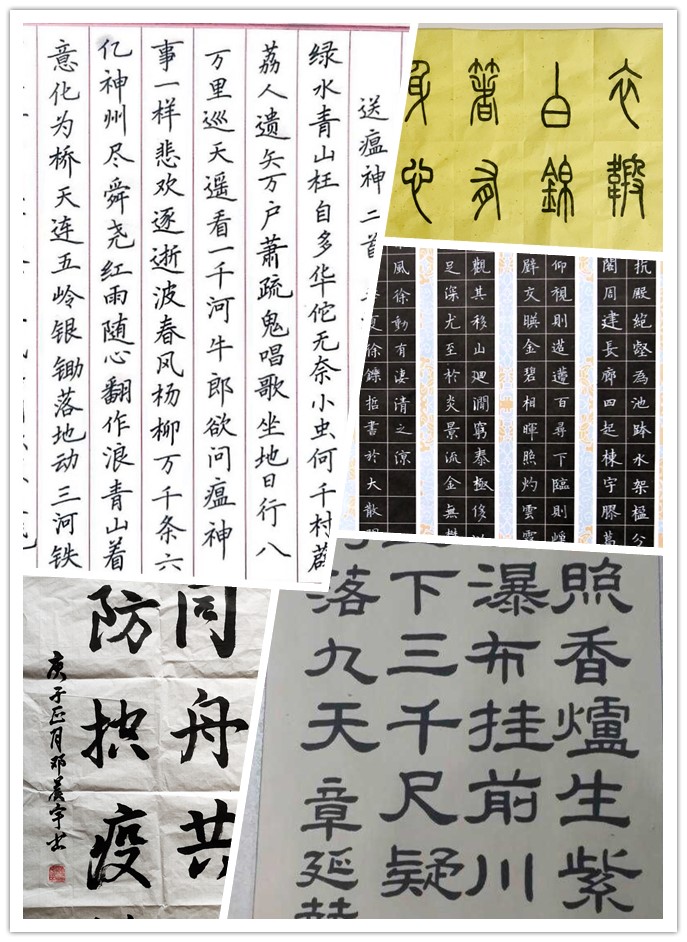 送瘟神二首
绿水青山枉自多华佗无奈小虫何千村薜
荔人遗矢万户萧疏鬼唱歌坐地日行八
万里巡天遥看一千河牛郎欲问瘟神
事一样悲欢逐逝波春风杨柳万千条六
亿神州尽舜尧红雨随心翻作浪青山着
意化为桥天连五岭银锄落地动三河铁
衣
白錦
著
心
抗殿絕壑為池跨水架楹分
閣周建長廊四起棟宇膠葛
仰視則迢遰百尋下臨則崢
壁交暎金碧相暉照灼雲霞
觀其移山迴澗窮泰極侈以
足深尤至於炎景流金無
風徐動有淒清之涼
徐鑠哲書於大散
同舟共
防控疫
庚子正月邓晨宇书
照香爐生紫
瀑布挂前川
下三千尺疑
落九天
章延